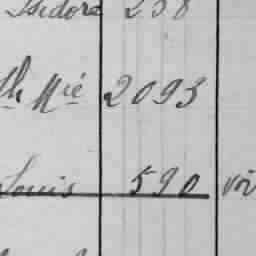 Isidore 238
th Mié 2093
Louis 590 voi